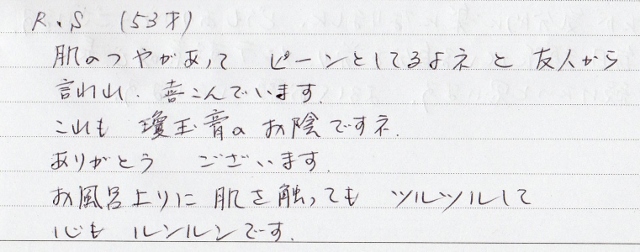 R.S (53才)
肌のつやがあって ピーンとしてるよネ と 友人から
言われ、喜こんでいます.
これも 瓊玉膏の お陰ですネ.
ありがとう ございます.
お風呂上りに 肌を触っても ツルツルして
心も ルンルンです.